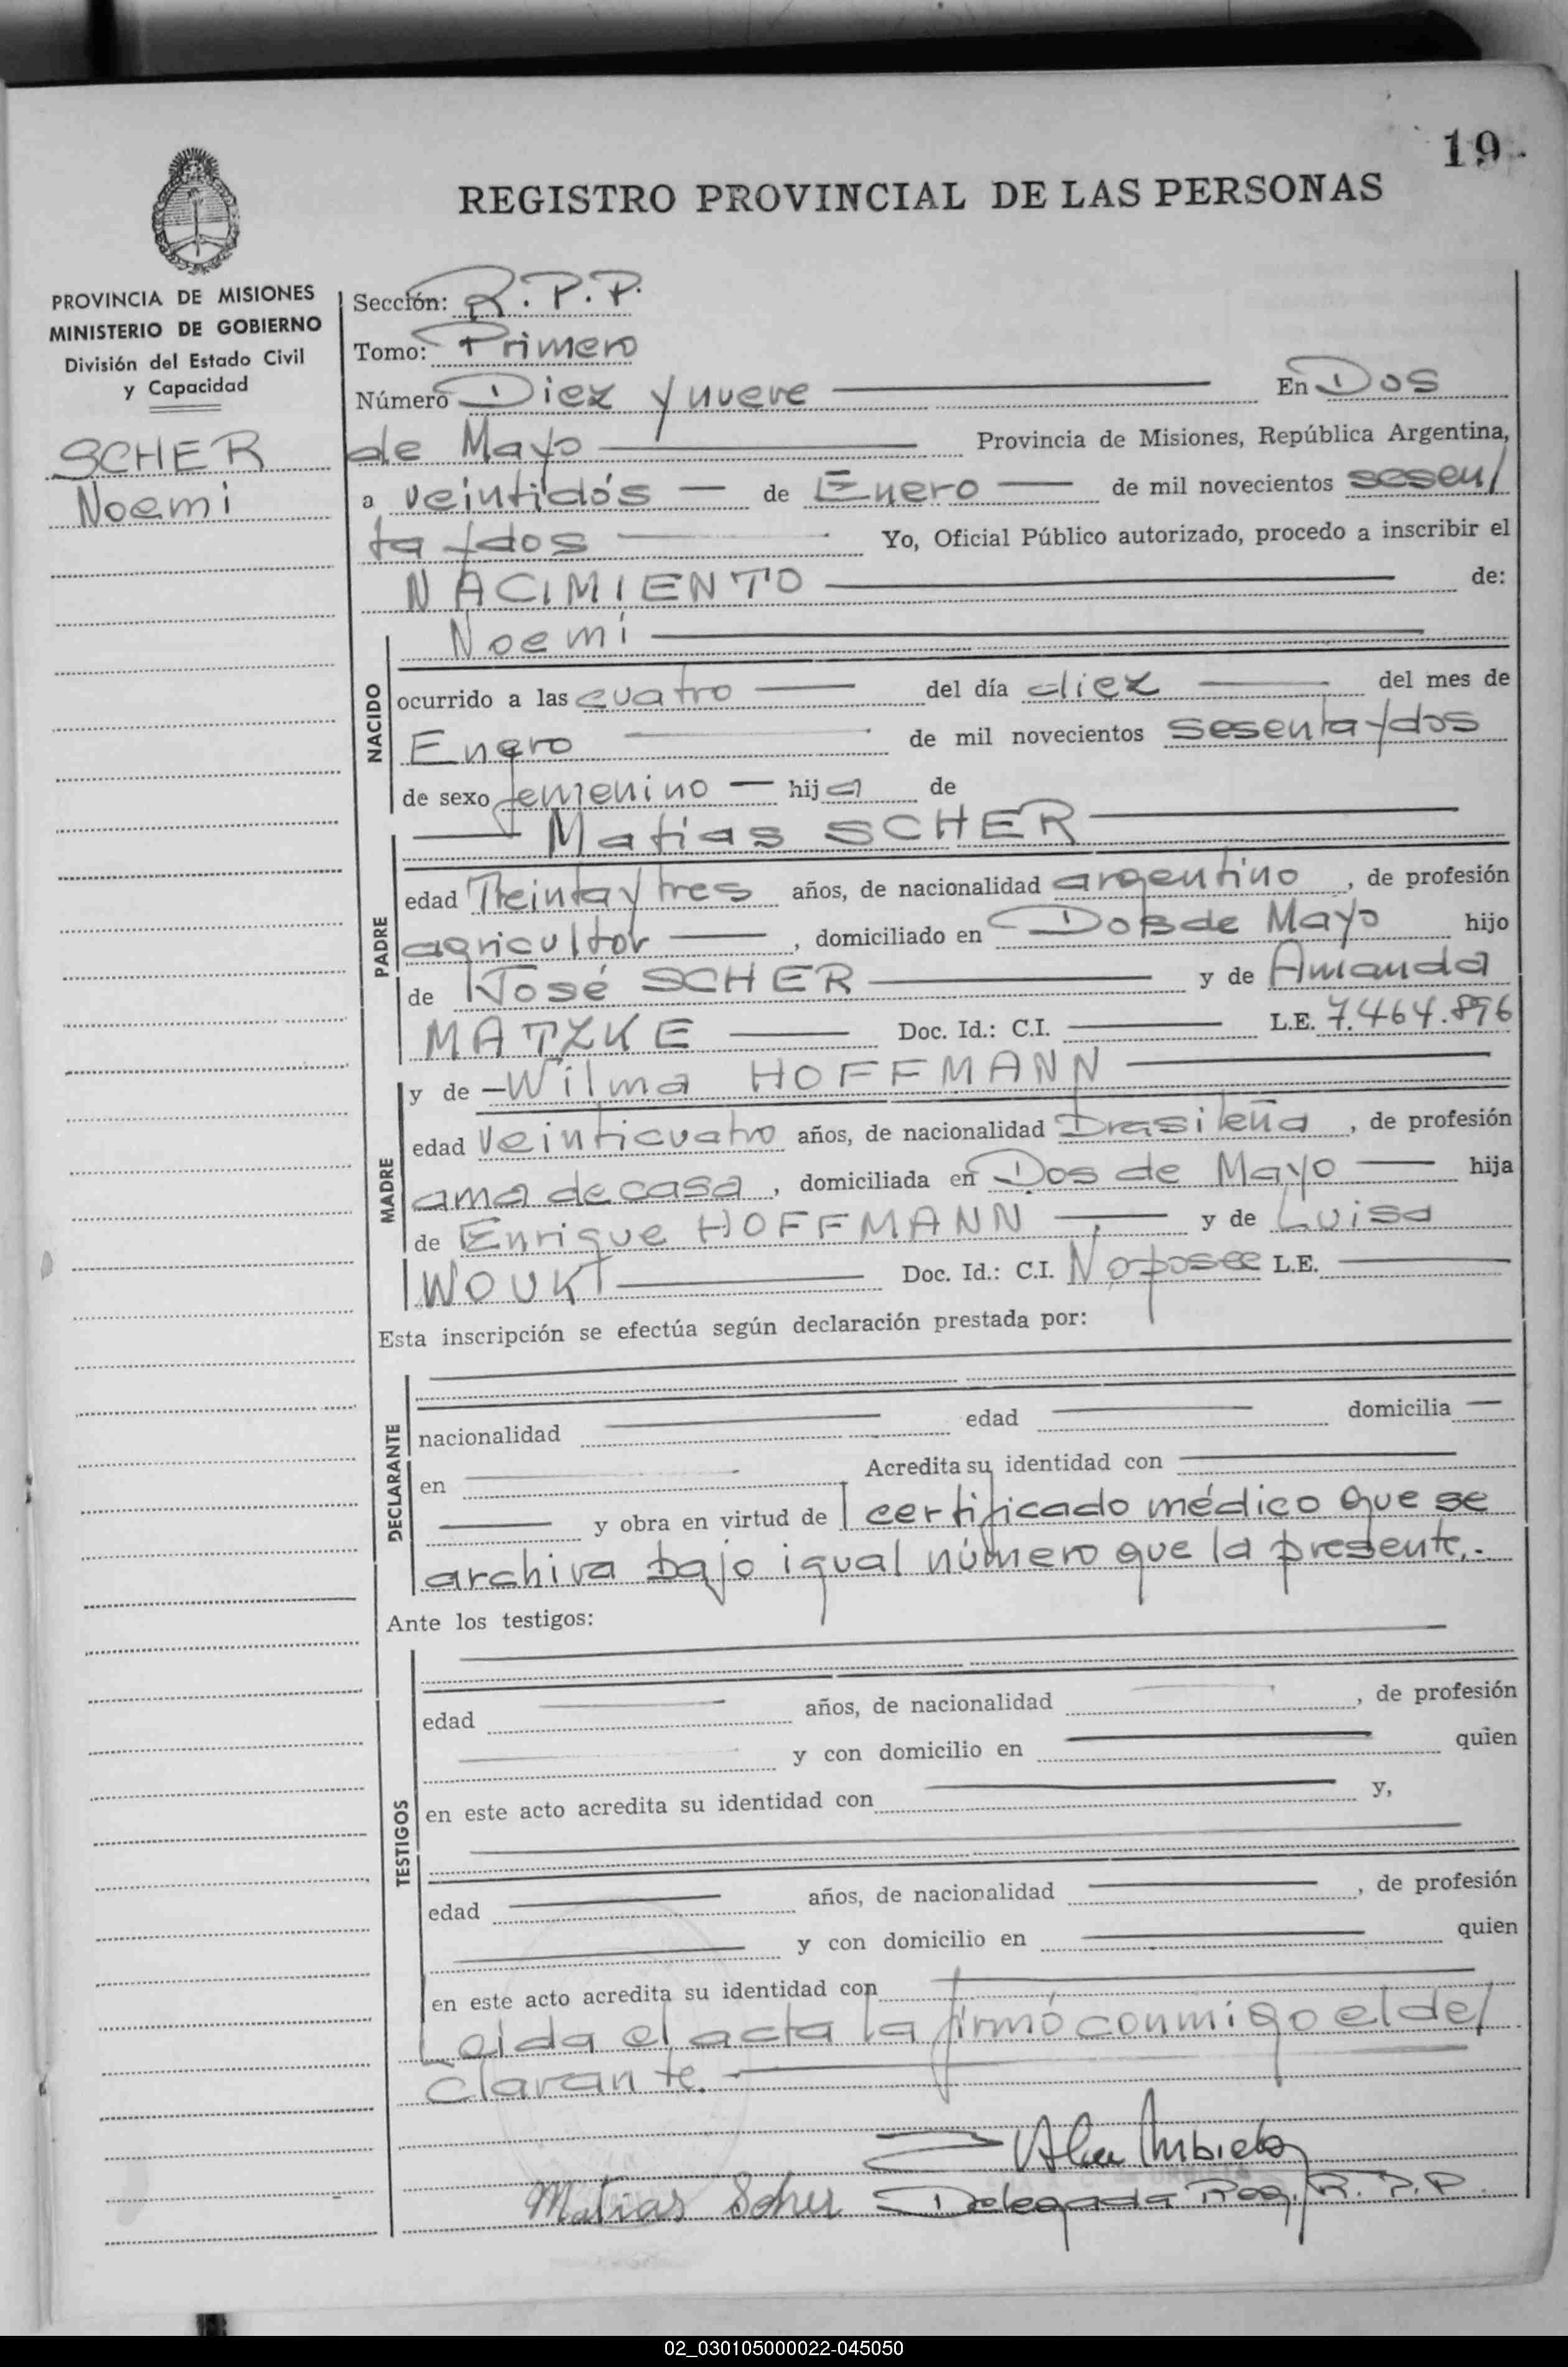 19.
REGISTRO PROVINCIAL DE LAS PERSONAS
PROVINCIA DE MISIONES
MINISTERIO DE GOBIERNO
División del Estado Civil
y Capacidad
SCHER
Noemi
Sección: R.P.P.
Tomo: Primero
Número Diez y nueve En Dos
de Mayo Provincia de Misiones, República Argentina,
a veintidós de Enero de mil novecientos sesen/
ta y dos Yo, Oficial Público autorizado, procedo a inscribir el
NACIMIENTO de:
NACIDO
Noemi
ocurrido a las cuatro del día diez del mes de
Enero de mil novecientos sesenta y dos
de sexo femenino hija de
PADRE
Matias SCHER
edad Treinta y tres años, de nacionalidad argentino, de profesión
agricultor, domiciliado en Dos de Mayo hijo
de José SCHER y de Amanda
MATZKE Doc. Id.: C.I. L.E. 7.464.896
MADRE
y de Wilma HOFFMANN
edad veinticuatro años, de nacionalidad brasileña, de profesión
ama de casa, domiciliada en Dos de Mayo hija
de Enrique HOFFMANN y de Luisa
WOUKT Doc. Id.: C.I. No posee L.E.
Esta inscripción se efectúa según declaración prestada por:
DECLARANTE
nacionalidad edad domicilia
en Acredita su identidad con
y obra en virtud de certificado médico que se
archiva bajo igual número que la presente.-
Ante los testigos:
TESTIGOS
edad años, de nacionalidad , de profesión
y con domicilio en quien
en este acto acredita su identidad con y,
edad años, de nacionalidad , de profesión
y con domicilio en quien
en este acto acredita su identidad con
Leida el acta la firmó conmigo el de/
clarante.
Matias Scher Delegada Reg. R.P.P.
02_030105000022-045050